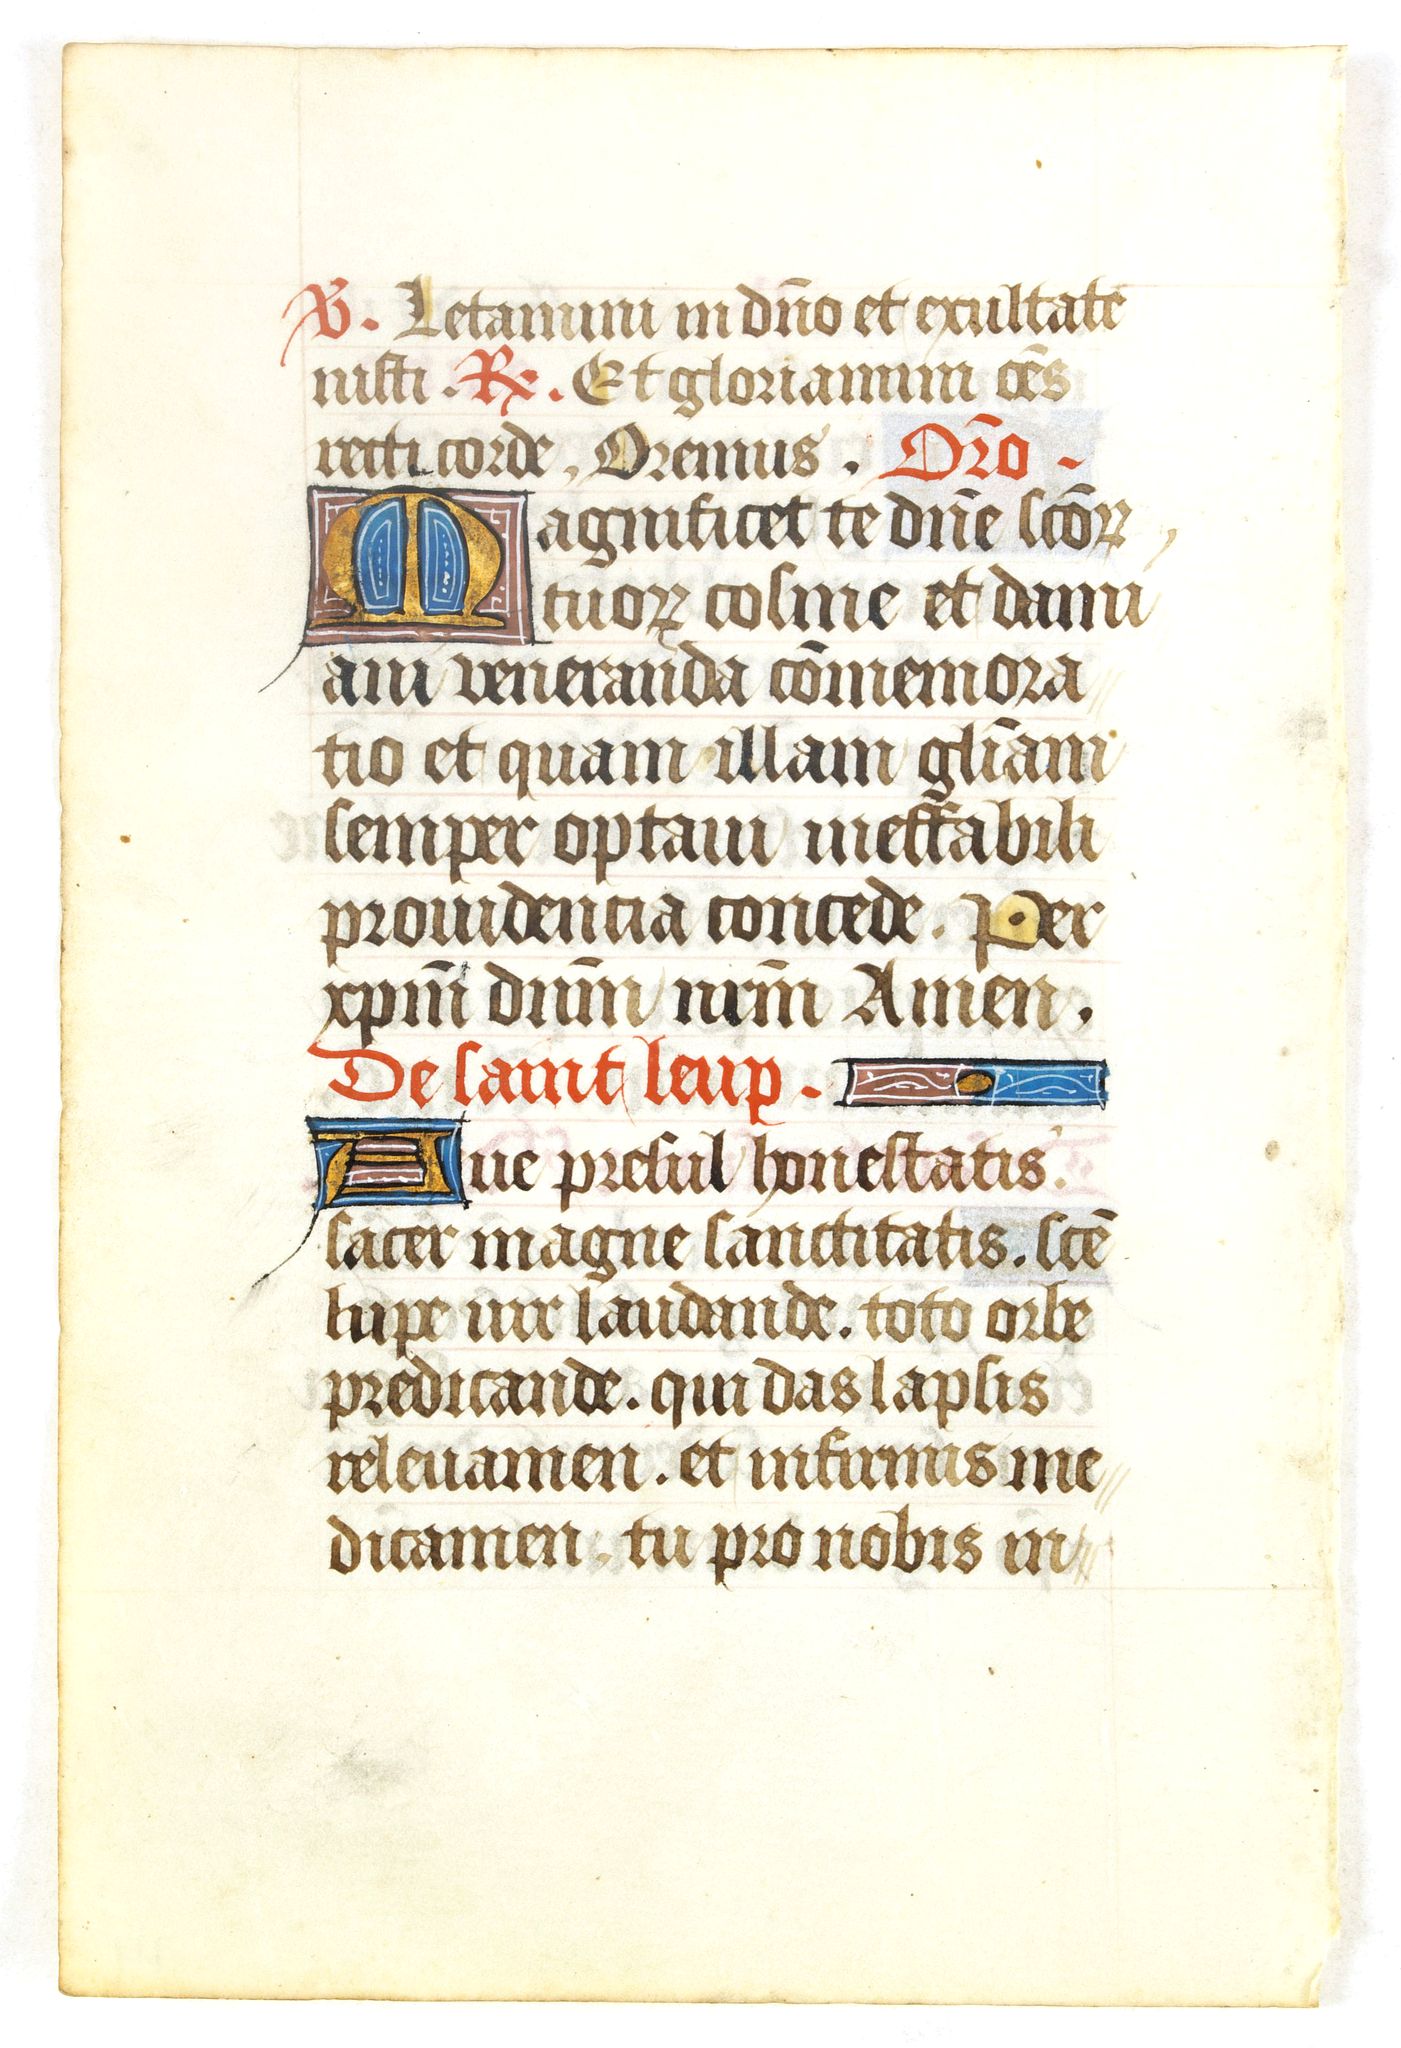 V. Letamini in dño et exultate
iusti. Rx. Et gloriamini oẽs
recti corde, Oremus. Orõ.
Magnificet te dñe scõꝝ
tuoꝝ cosme et dami
ani veneranda cõmemora
tio et quam illam gliãm
semper optaui ineffabili
prouidencia concede. Per
xpm̃ dnm̃ nrm̃ Amen.
De saint leup.
Aue presul honestatis.
sacer magne sanctitatis. scẽ
lupe uir laudande. toto orbe
predicande. qui das lapsis
releuamen. et infirmis me
dicamen. tu pro nobis in